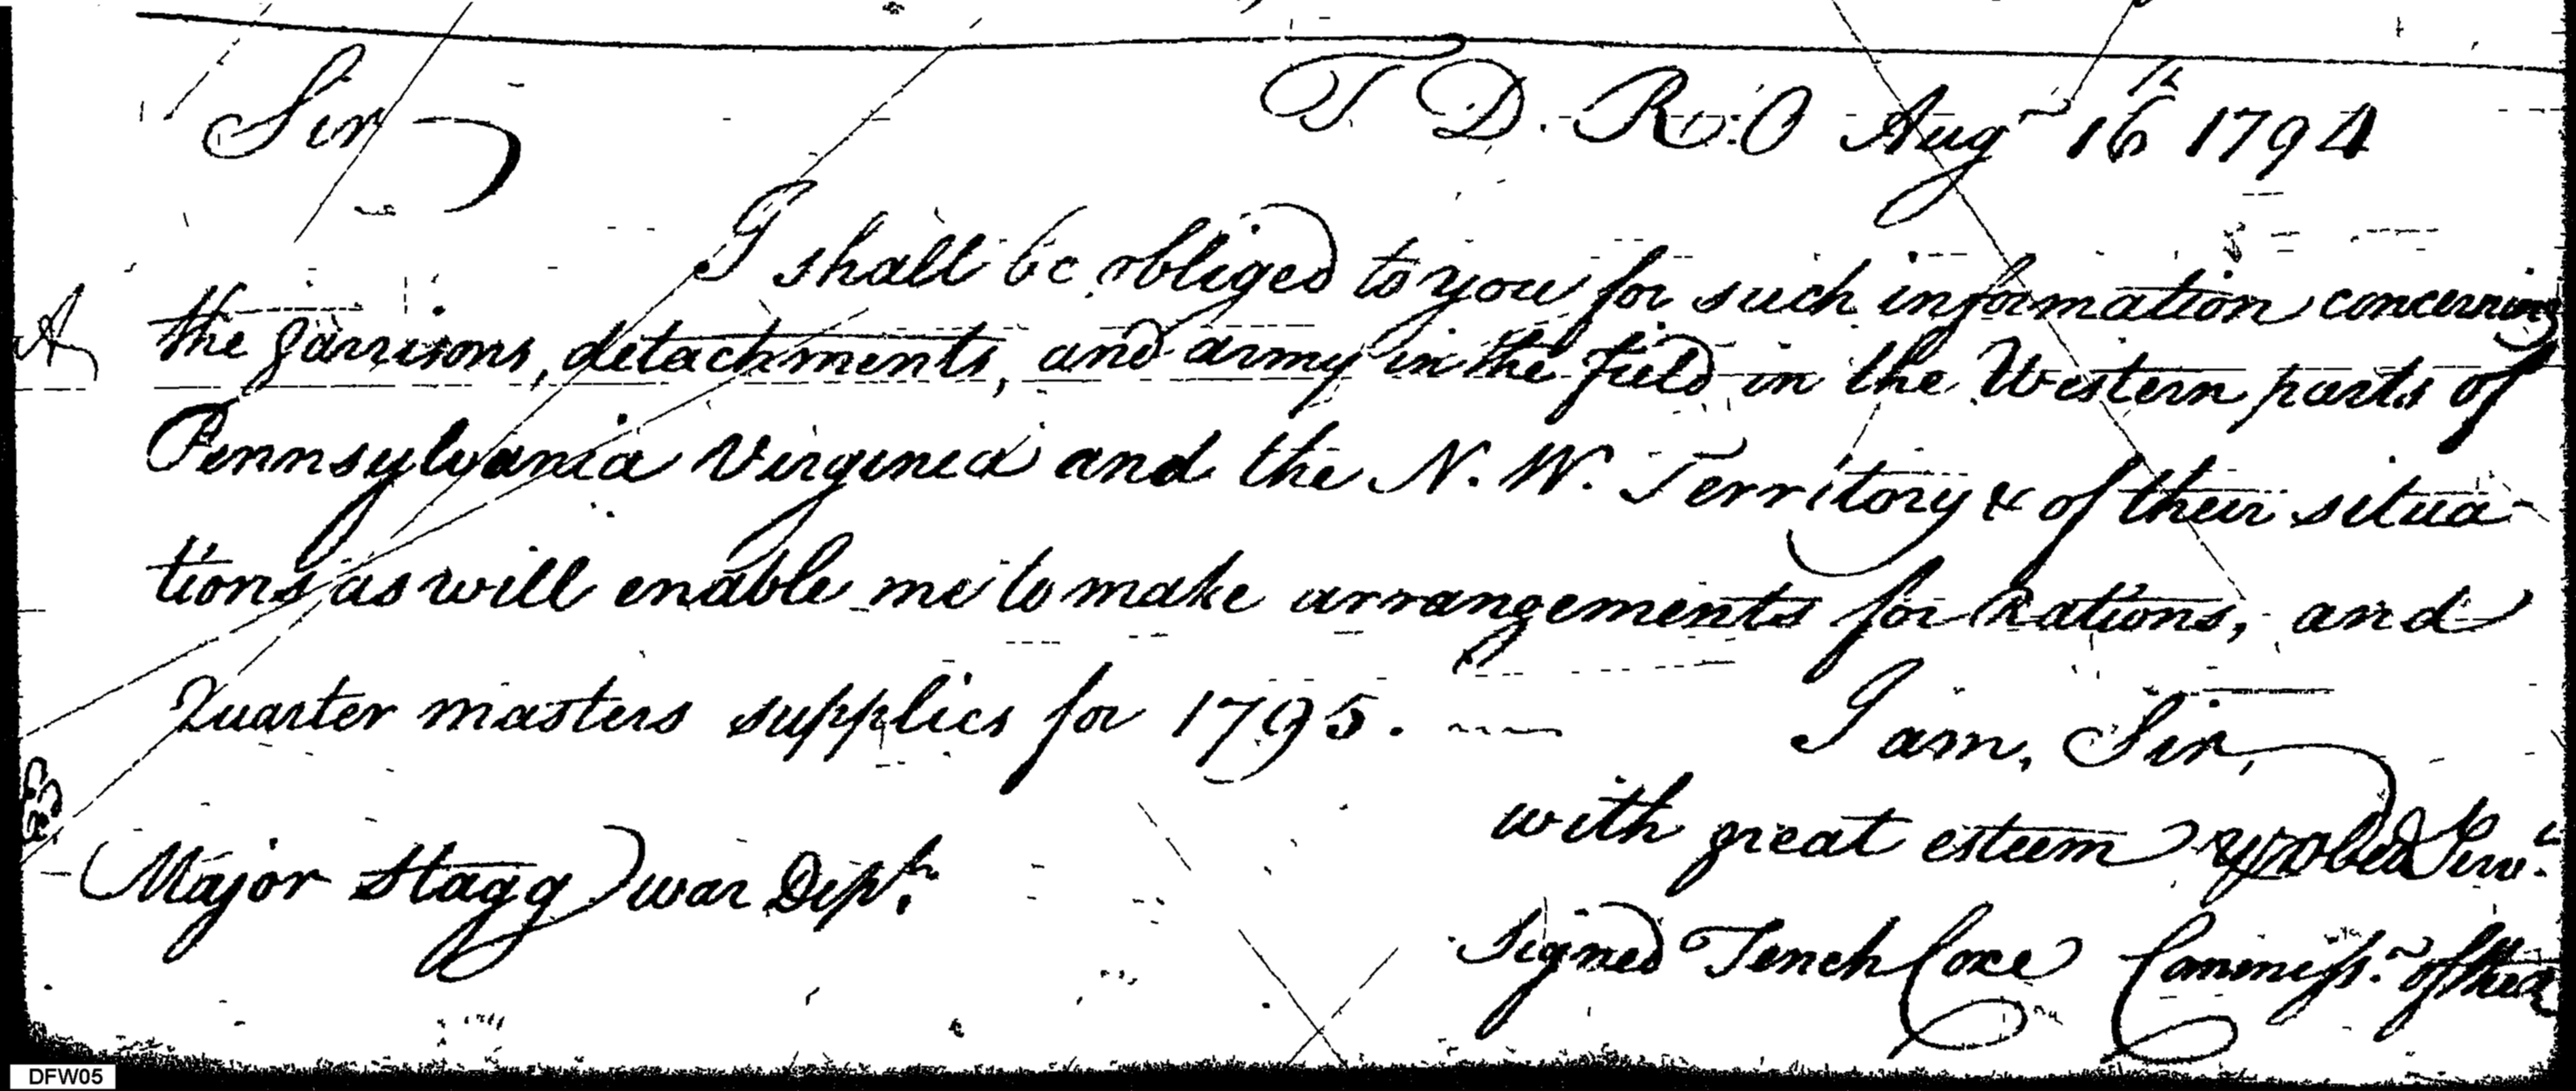 T. D. R: O Augt 16th 1794
Sir
I shall be obliged to you for such information concerning
the garrisons, detachments, and army in the field in the Western parts of
Pennsylvania Virginia and the N. W. Territory & of their situa-
tions as will enable me to make arrangements for Rations, and
Quarter masters supplies for 1795.
I am, Sir,
with great esteem yr obed Servt.
Major Stagg war Dept.
signed Tench Coxe Commissr. of the R
DFW05